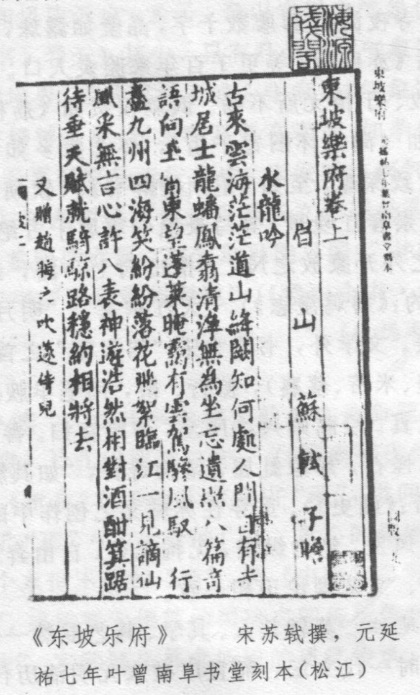 海源
殘閣
東坡樂府
元延祐七年葉曾南阜書堂刻本
東坡樂府卷上
眉山 蘇軾 子瞻
水龍吟
古來雲海茫茫道山絳闕知何處人間自有赤
城居士龍蟠鳳翥清淨無為坐忘遺照八篇竒
語向玉霄東望蓬萊晻靄有雲駕驂鳳馭 行
盡九州四海笑紛紛落花飛絮臨江一見謫仙
風采無言心許八表神遊浩然相對酒酣箕踞
待垂天賦就騎鯨路穩約相將去
又贈趙晦之吹笛侍兒
《东坡乐府》 宋苏轼撰，元延
祐七年叶曾南阜书堂刻本(松江)